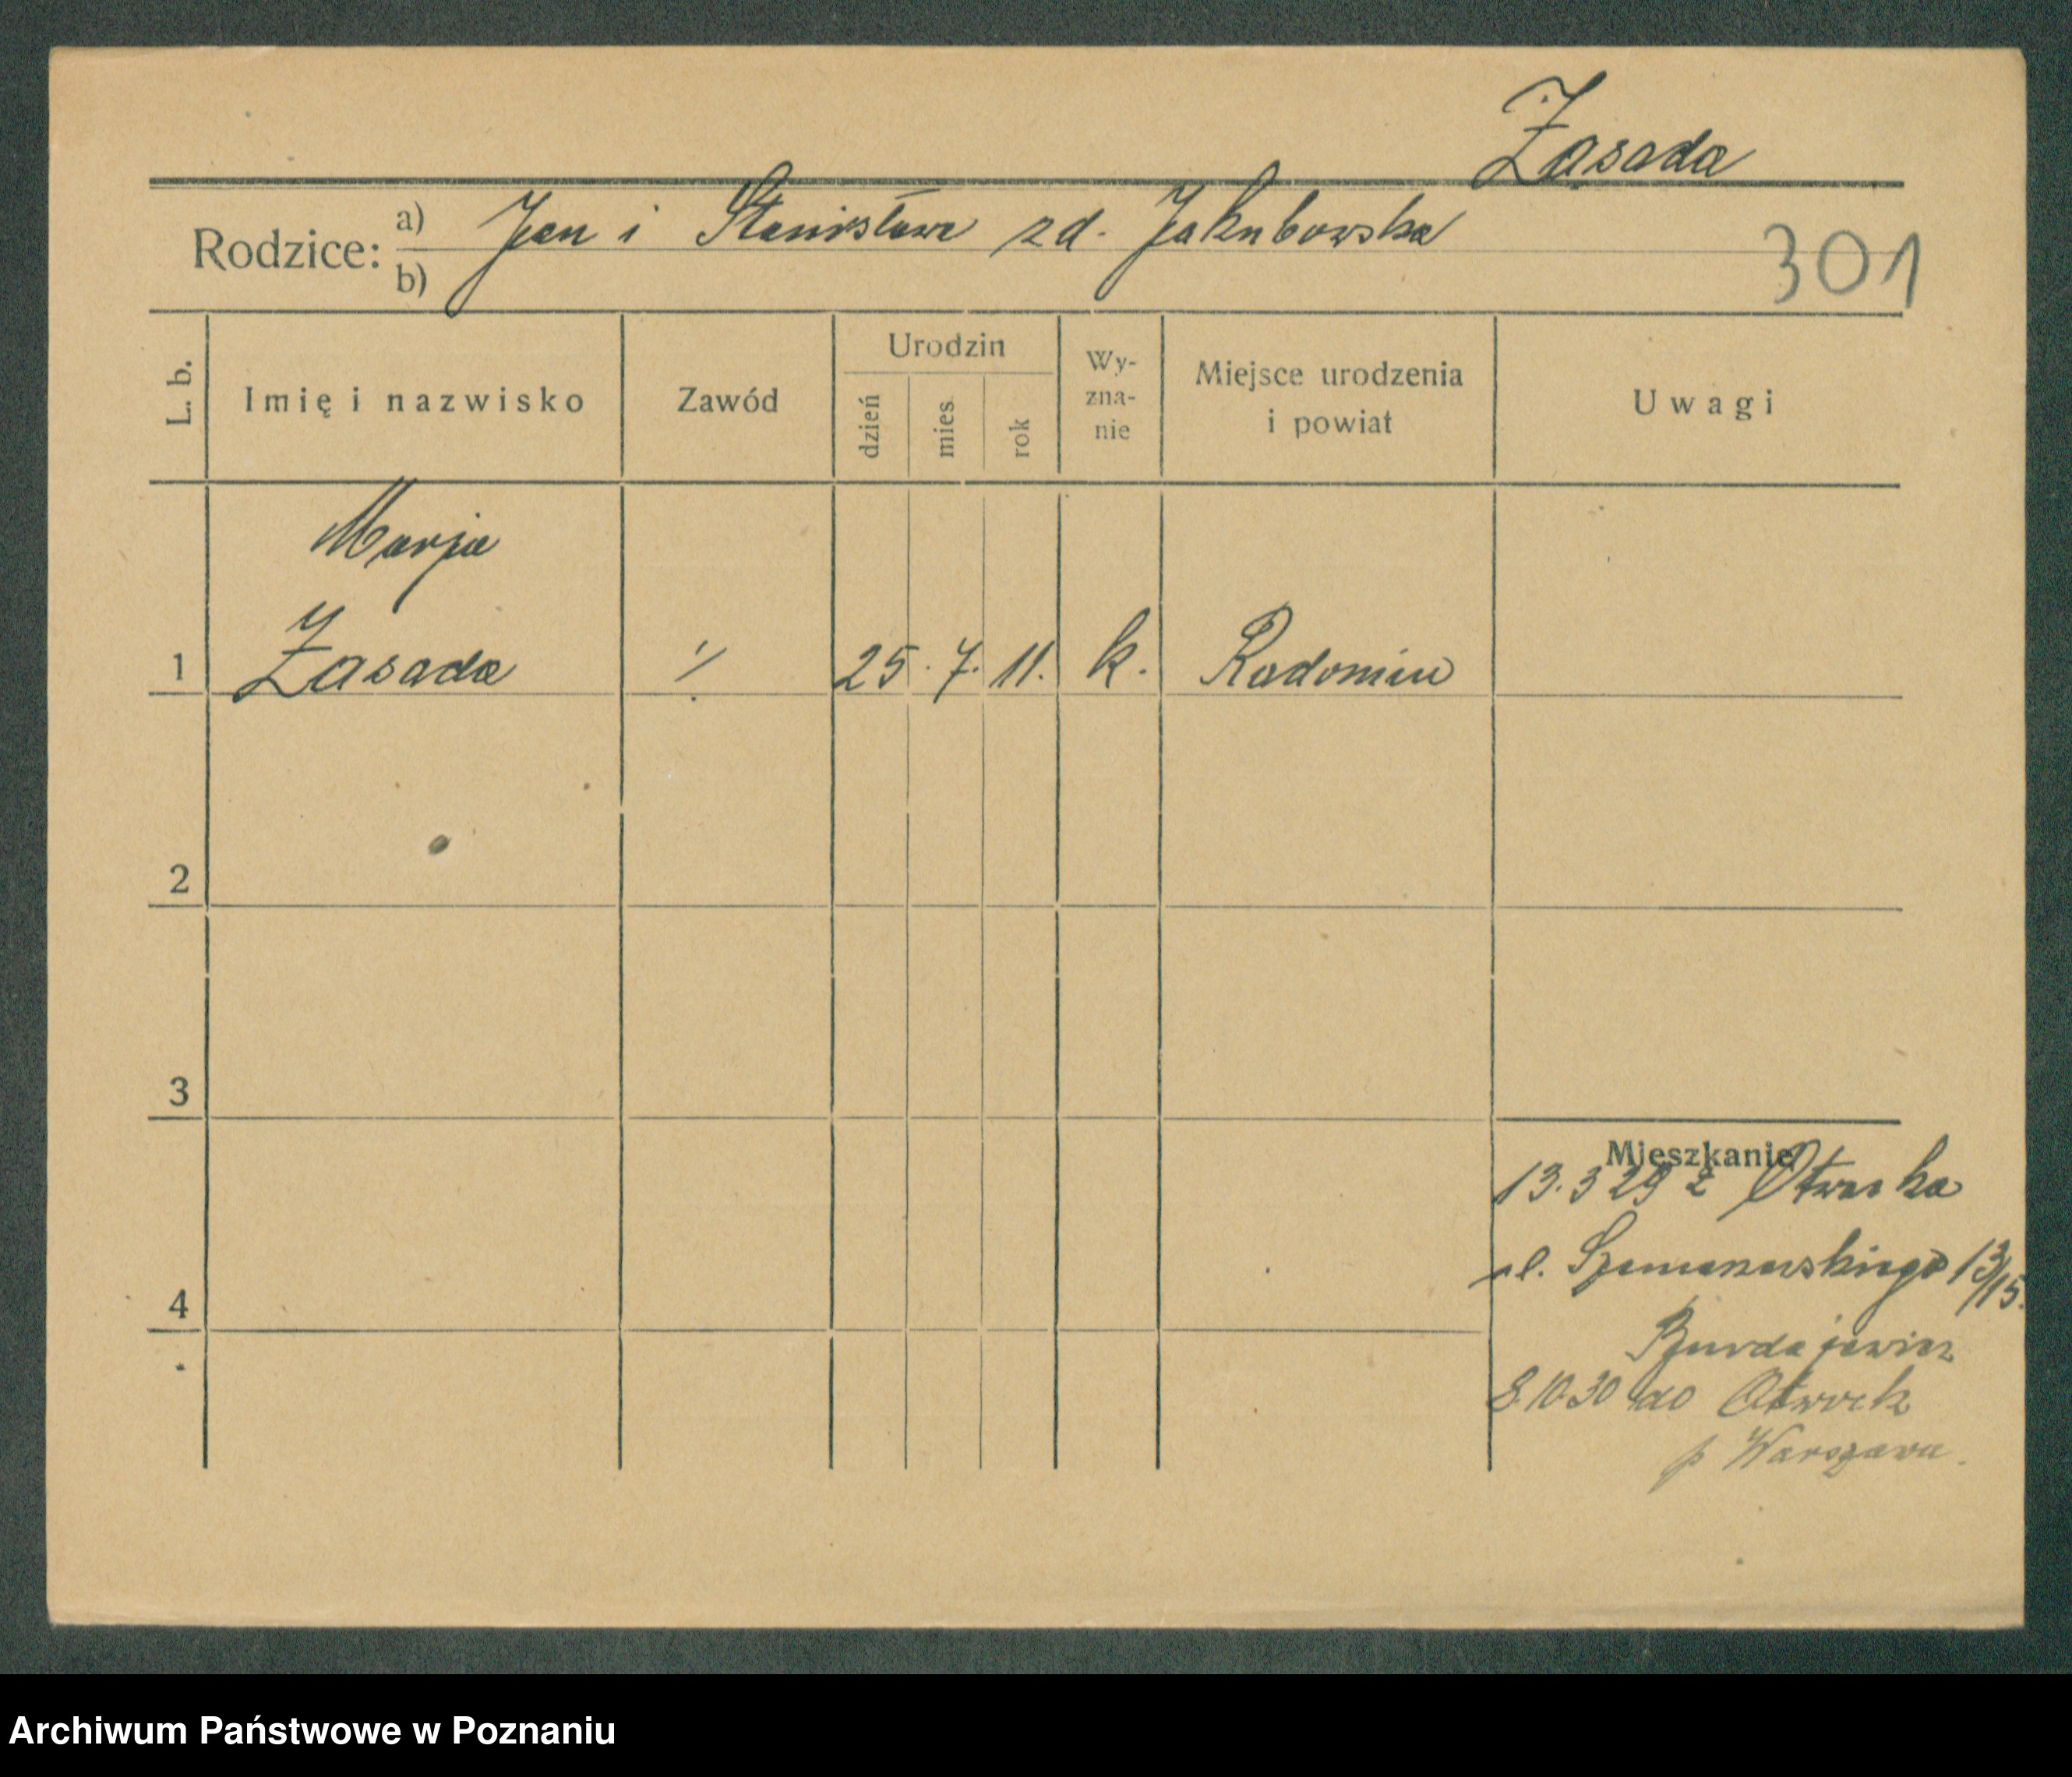 Zasada
Rodzice: a) Jan i Stanisława zd. Jakubowska
b)
301
L. b.
Imię i nazwisko
Zawód
Urodzin
dzień
mies.
rok
Wy-
zna-
nie
Miejsce urodzenia
i powiat
Uwagi
Marja
1 Zasada ·/. 25. 7. 11. k. Radomiu
2
3
4
Mieszkanie
13.3 29 z Otwocka
ul. 13/15.
8.10.30 do Otwock
p Warszawa.
Archiwum Państwowe w Poznaniu